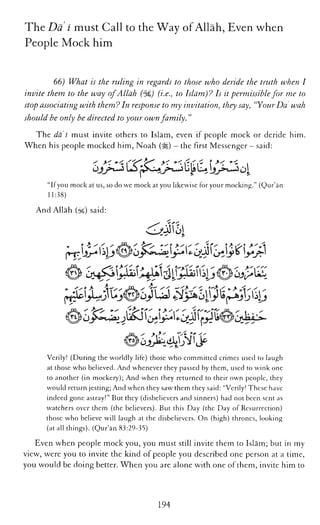 The Dāʿī must Call to the Way of Allāh, Even when
People Mock him
66) What is the ruling in regards to those who deride the truth when I
invite them to the way of Allāh (ﷻ) (i.e., to Islam)? Is it permissible for me to
stop associating with them? In response to my invitation, they say, "Your Daʿwah
should be only be directed to your own family."
The dāʿī must invite others to Islam, even if people mock or deride him.
When his people mocked him, Noah (ﷺ) – the first Messenger – said:
إِن تَسْخَرُوا مِنَّا فَإِنَّا نَسْخَرُ مِنكُمْ كَمَا تَسْخَرُونَ
"If you mock at us, so do we mock at you likewise for your mocking." (Qurʾān
11:38)
And Allāh (ﷻ) said:
إِنَّ الَّذِينَ
أَجْرَمُوا كَانُوا مِنَ الَّذِينَ آمَنُوا يَضْحَكُونَ ﴿٢٩﴾ وَإِذَا مَرُّوا بِهِمْ
يَتَغَامَزُونَ ﴿٣٠﴾ وَإِذَا انقَلَبُوا إِلَىٰ أَهْلِهِمُ انقَلَبُوا فَكِهِينَ ﴿٣١﴾
وَإِذَا رَأَوْهُمْ قَالُوا إِنَّ هَٰؤُلَاءِ لَضَالُّونَ ﴿٣٢﴾ وَمَا أُرْسِلُوا عَلَيْهِمْ
حَافِظِينَ ﴿٣٣﴾ فَالْيَوْمَ الَّذِينَ آمَنُوا مِنَ الْكُفَّارِ يَضْحَكُونَ ﴿٣٤﴾
عَلَى الْأَرَائِكِ يَنظُرُونَ ﴿٣٥﴾
Verily! (During the worldly life) those who committed crimes used to laugh
at those who believed. And whenever they passed by them, used to wink one
to another (in mockery); And when they returned to their own people, they
would return jesting; And when they saw them they said: "Verily! These have
indeed gone astray!" But they (disbelievers and sinners) had not been sent as
watchers over them (the believers). But this Day (the Day of Resurrection)
those who believe will laugh at the disbelievers. On (high) thrones, looking
(at all things). (Qurʾān 83:29-35)
Even when people mock you, you must still invite them to Islām; but in my
view, were you to invite the kind of people you described one person at a time,
you would be doing better. When you are alone with one of them, invite him to
194